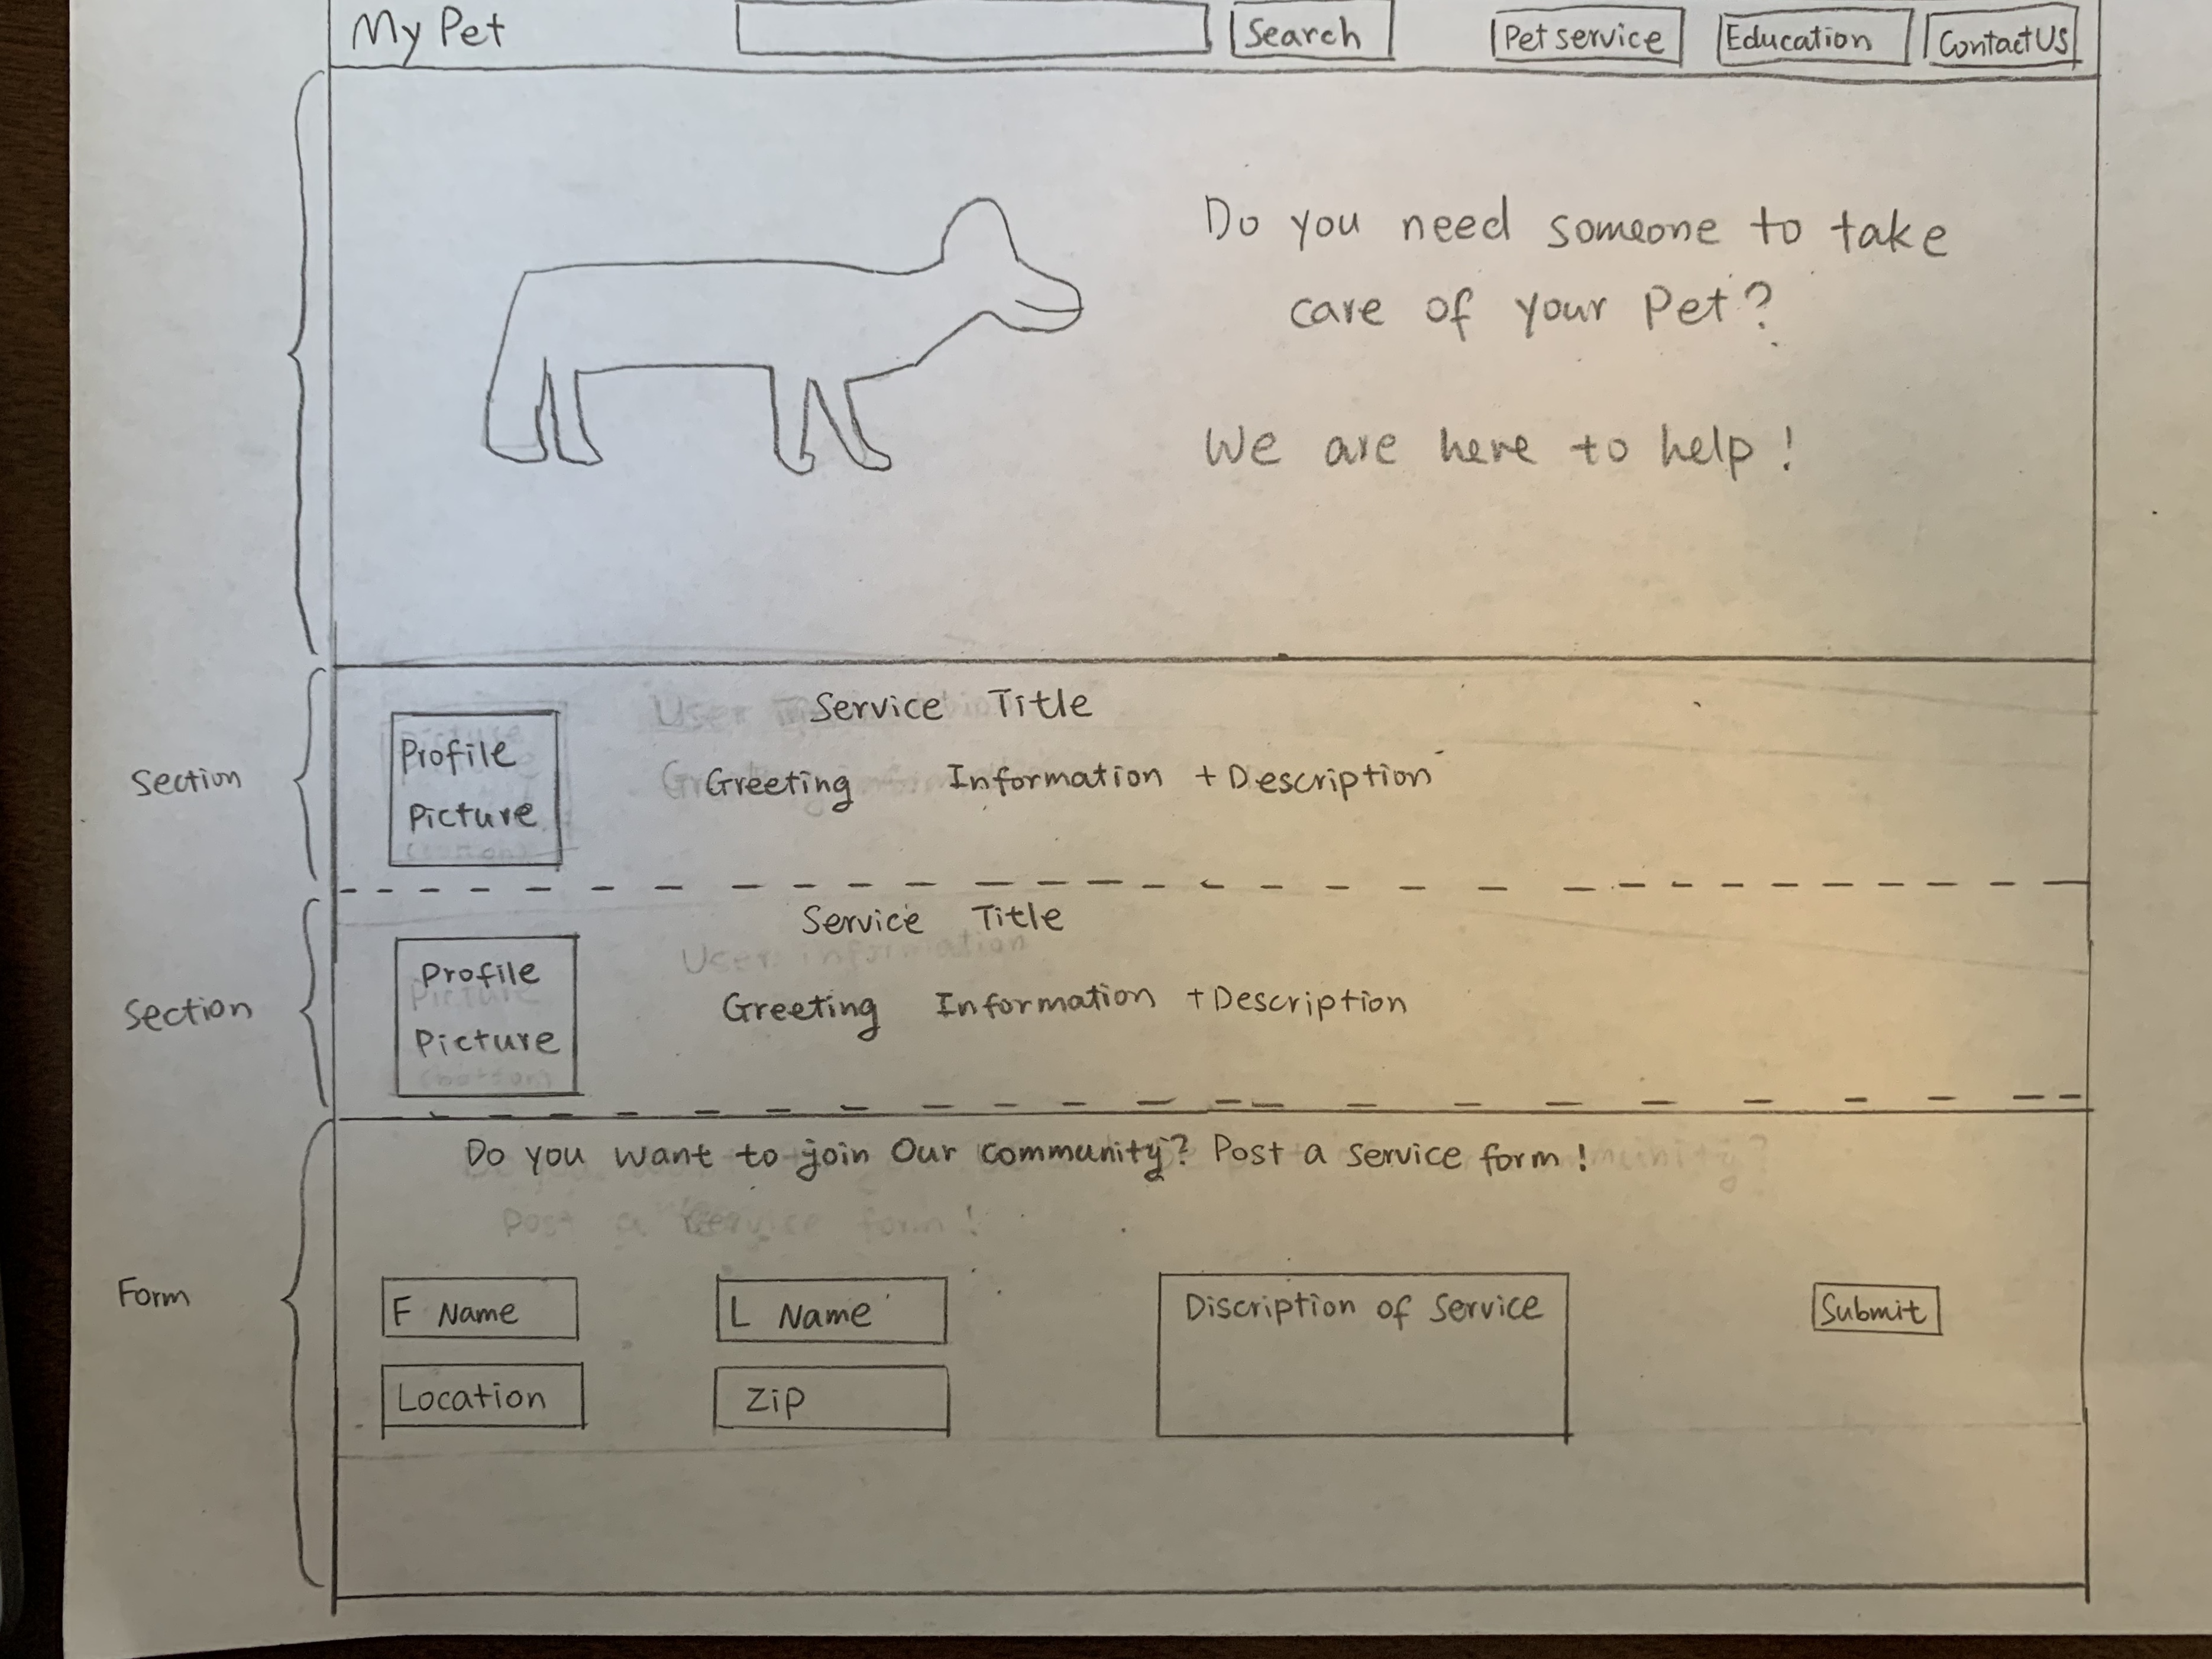 My Pet
Search
Pet service
Education
Contact Us
Do you need someone to take
care of your Pet?
We are here to help!
Section
Profile
Picture
Service Title
Greeting Information + Description
Section
Profile
Picture
Service Title
User information
Greeting Information + Description
Form
Do you want to join Our community? Post a service form!
Post a service form!
F Name
L Name
Discription of Service
Submit
Location
Zip